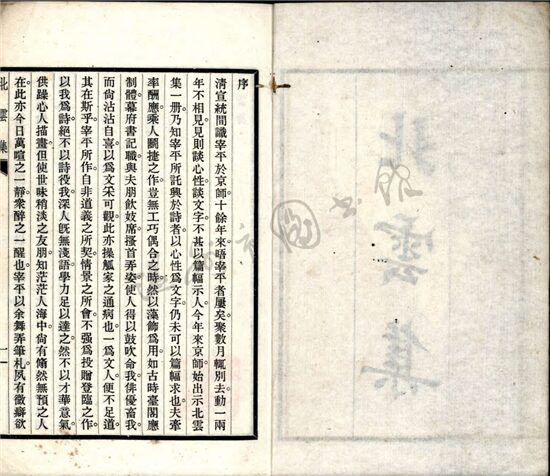 北雲集
序
清宣統間識宰平於京師十餘年來晤宰平者屢矣聚數月輒別去動一兩
年不相見見則談心性談文字不甚以篇幅示人今年來京師始出示北雲
集一册乃知宰平所託興於詩者以心性爲文字仍未可以篇幅求也夫牽
率酬應乘人鬭捷之作豈無工巧偶合之時然以藻飾爲用如古時臺閣應
制體幕府書記職與夫朋飲妓席搔首弄姿使人得以鼓吹命我俳優畜我
而尙沾沾自喜以爲文采可觀此亦操觚家之通病也一爲文人便不足道
其在斯乎宰平所作自非道義之所契情景之所會不强爲投贈登臨之作
以我爲詩絕不以詩役我深人旣無淺語學力足以達之然不以才華意氣
供躁心人描畫但使世味稍淡之友朋知茫茫人海中尙有翛然無預之人
在此亦今日萬喧之一靜衆醉之一醒也宰平以余舞弄筆札夙有微癖欲
北雲集
一